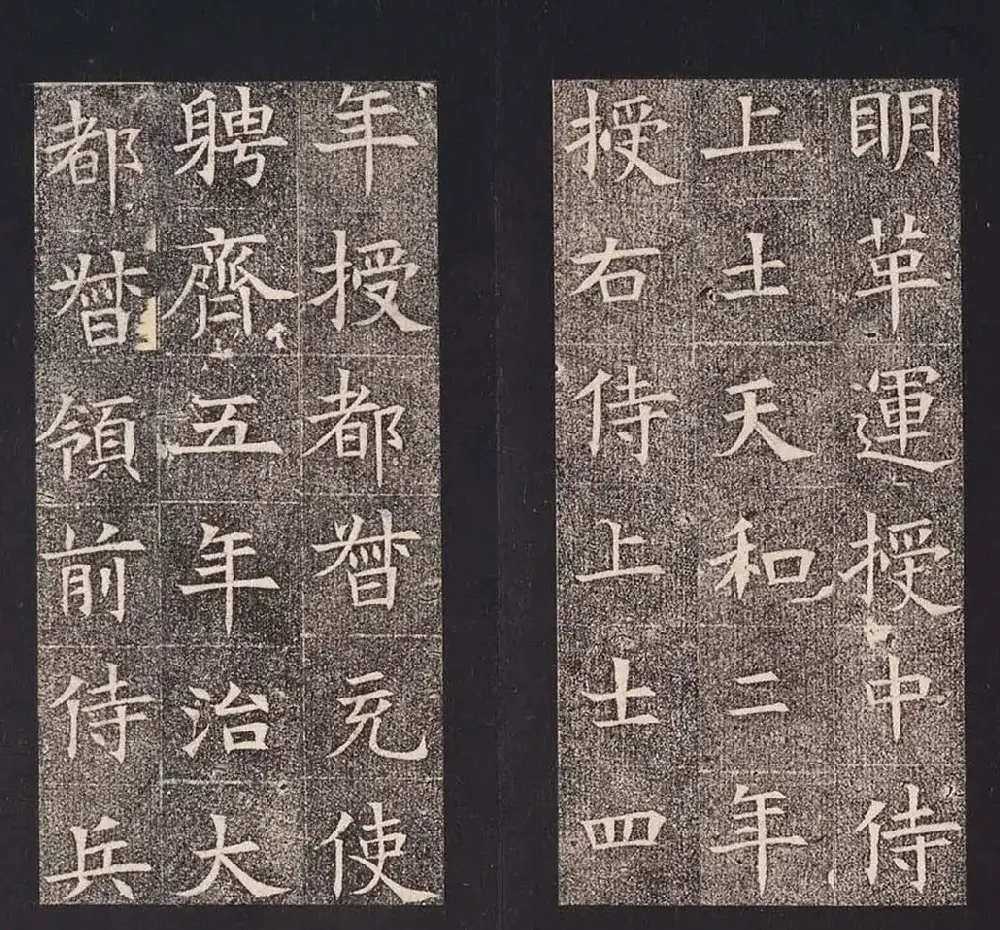 眀革運授中侍
上士天和二年
授右侍上士四
年授都督充使
聘齊五年治大
都督領前侍兵